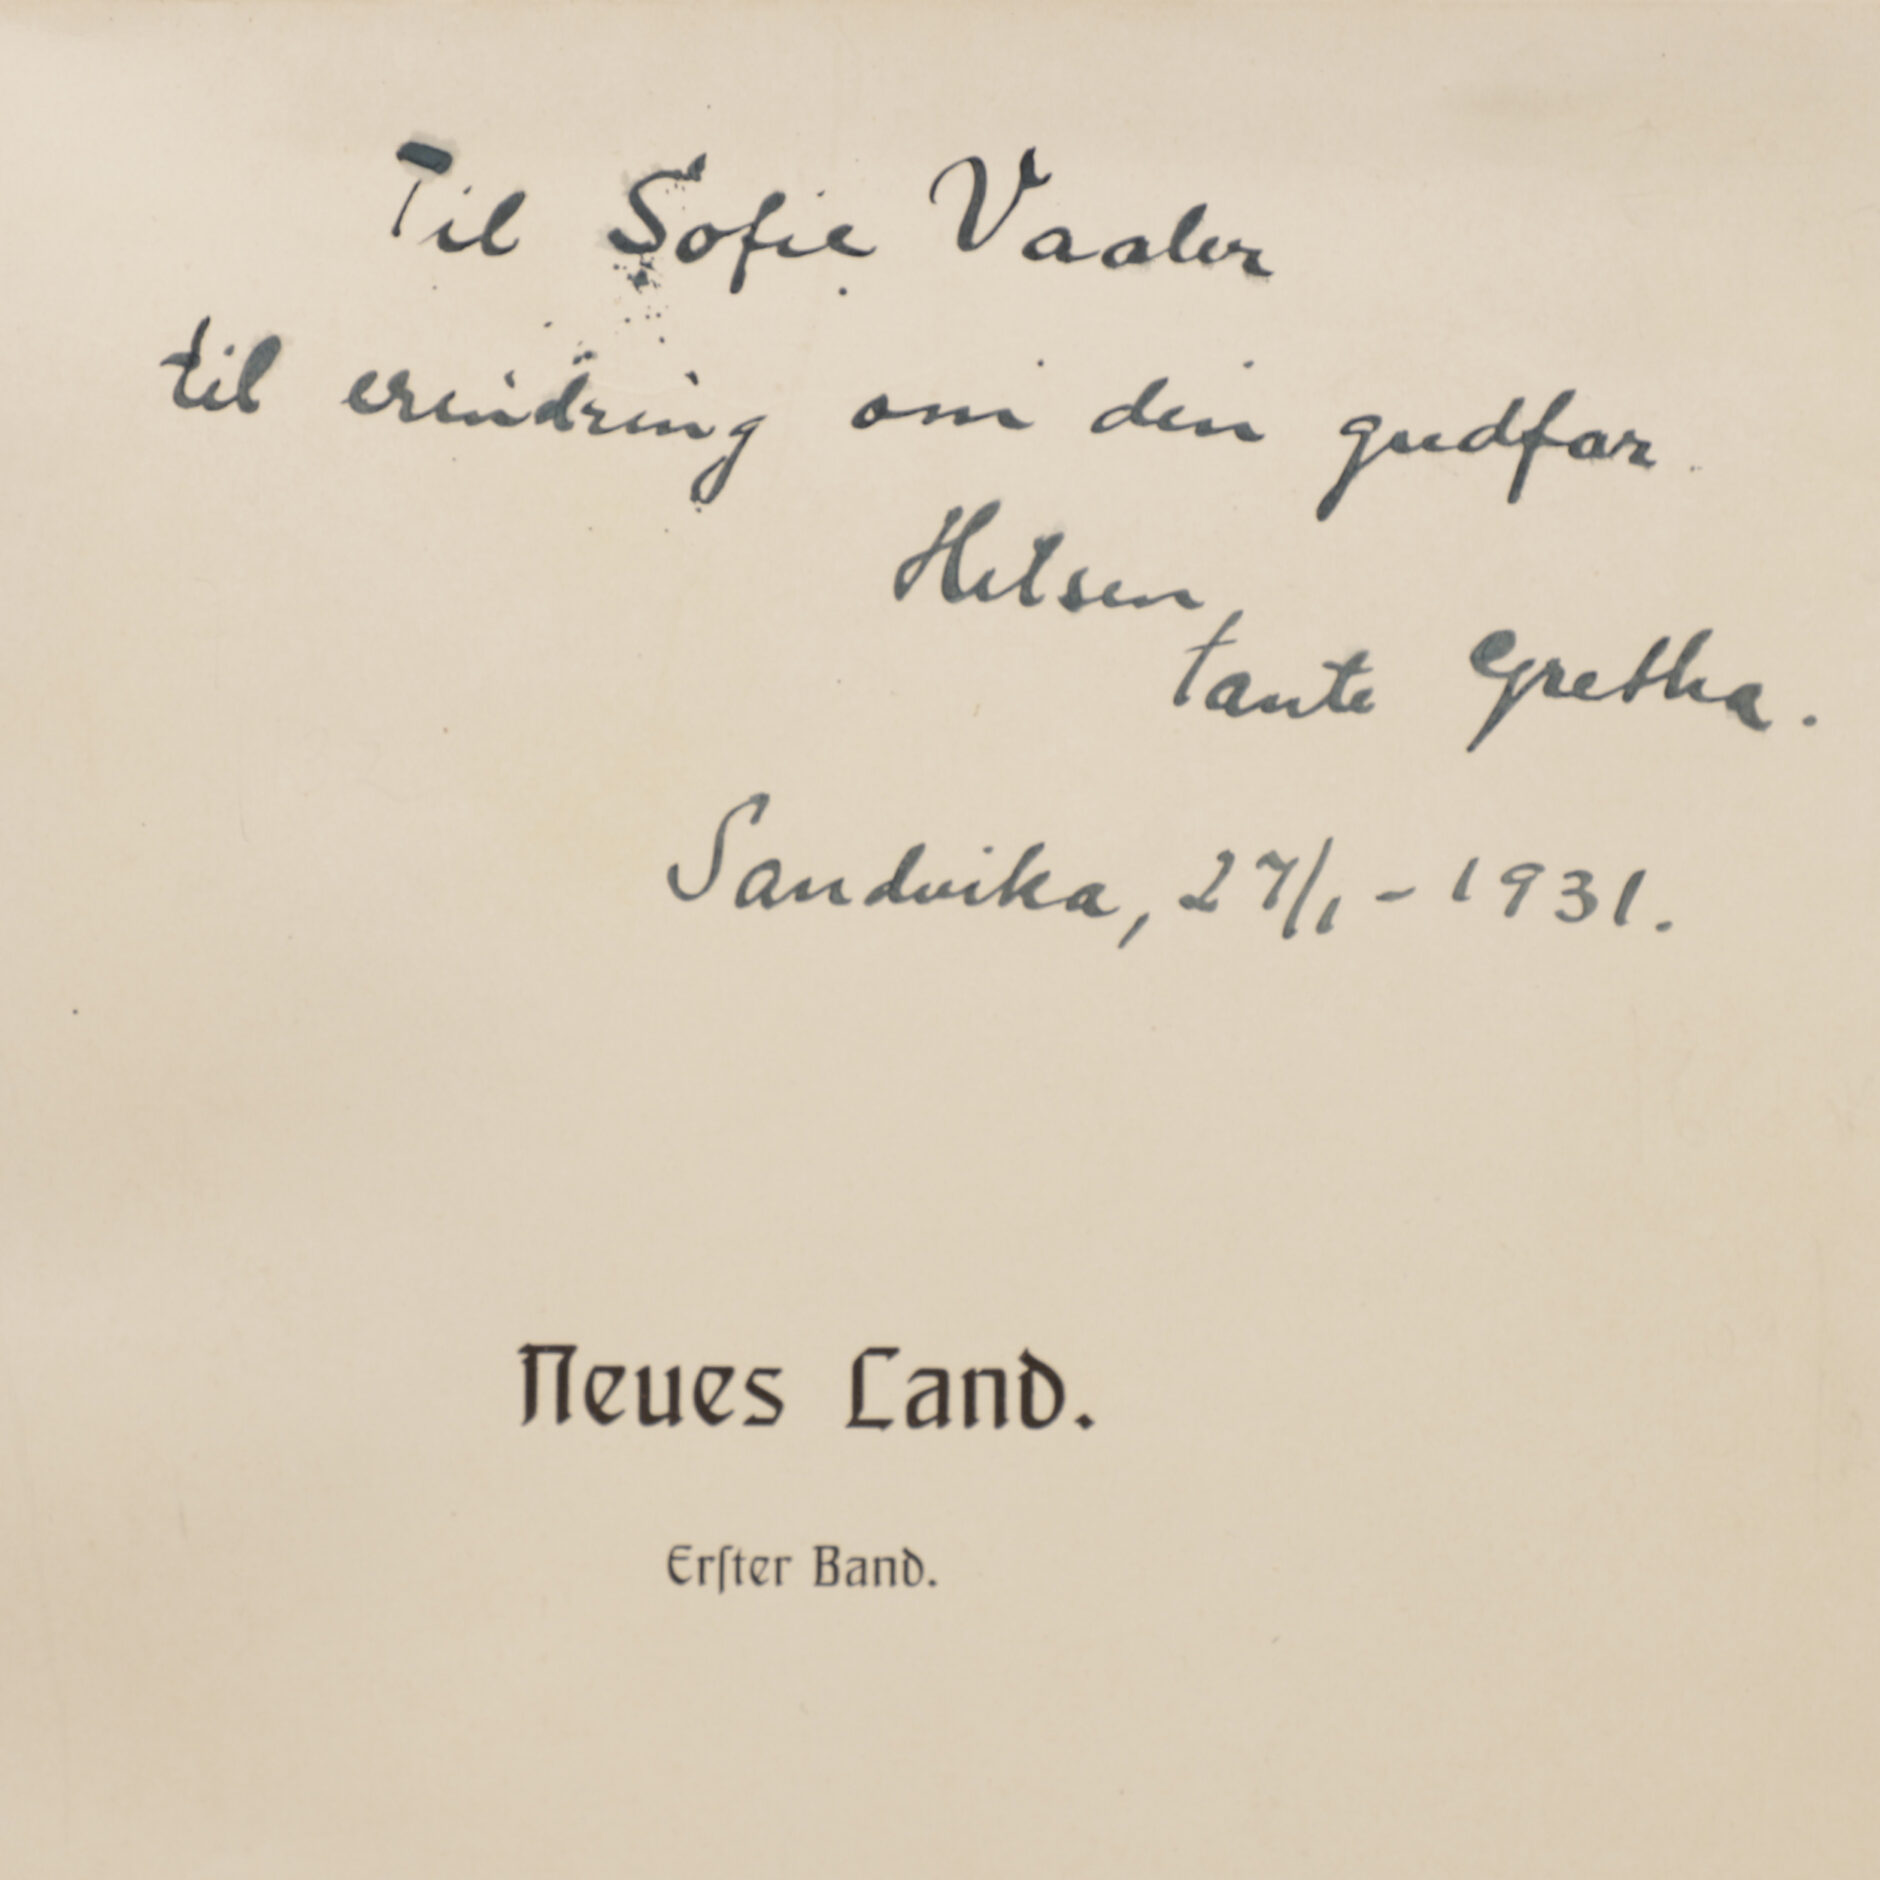 Til Sofie Vaaler
til erindring om din gudfar.
Hilsen,
tante Gretha.
Sandvika, 27/1 - 1931.
Neues Land.
Erſter Band.